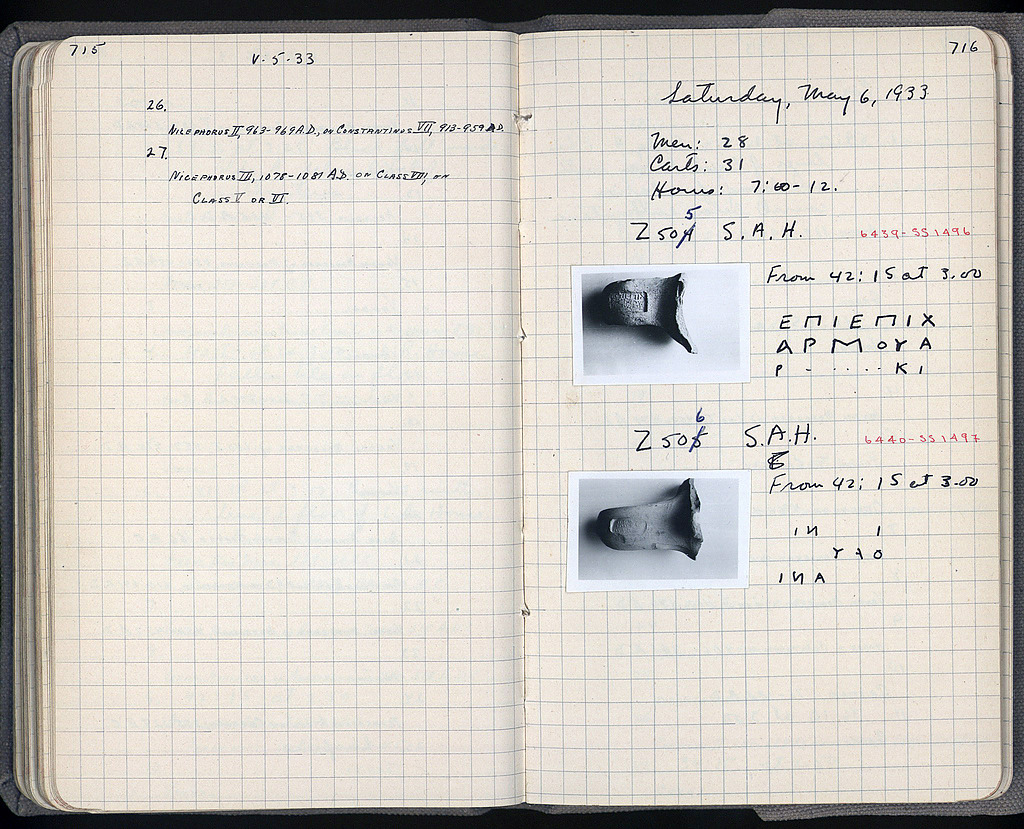 715
V-5-33
26.
NICEPHORUS II, 963-969 A.D., ON CONSTANTINUS VII, 913-959 A.D.
27.
NICEPHORUS III, 1078-1081 A.D. ON CLASS VIII, ON
CLASS V OR VI.
716
Saturday, May 6, 1933
Men: 28
Carts: 31
Hours: 7:00-12.
5
Z 504 S.A.H. 6439-SS1496
From 42: 15 at 3.00
ΕΠΙΕΠΙΧ
ΑΡΜΟΥΑ
Ρ - ····· ΚΙ
6
Z 505 S.A.H. 6440-SS1497
From 42: 15 at 3.00
ΙИ Ι
ΥΛΟ
ΙИΑ